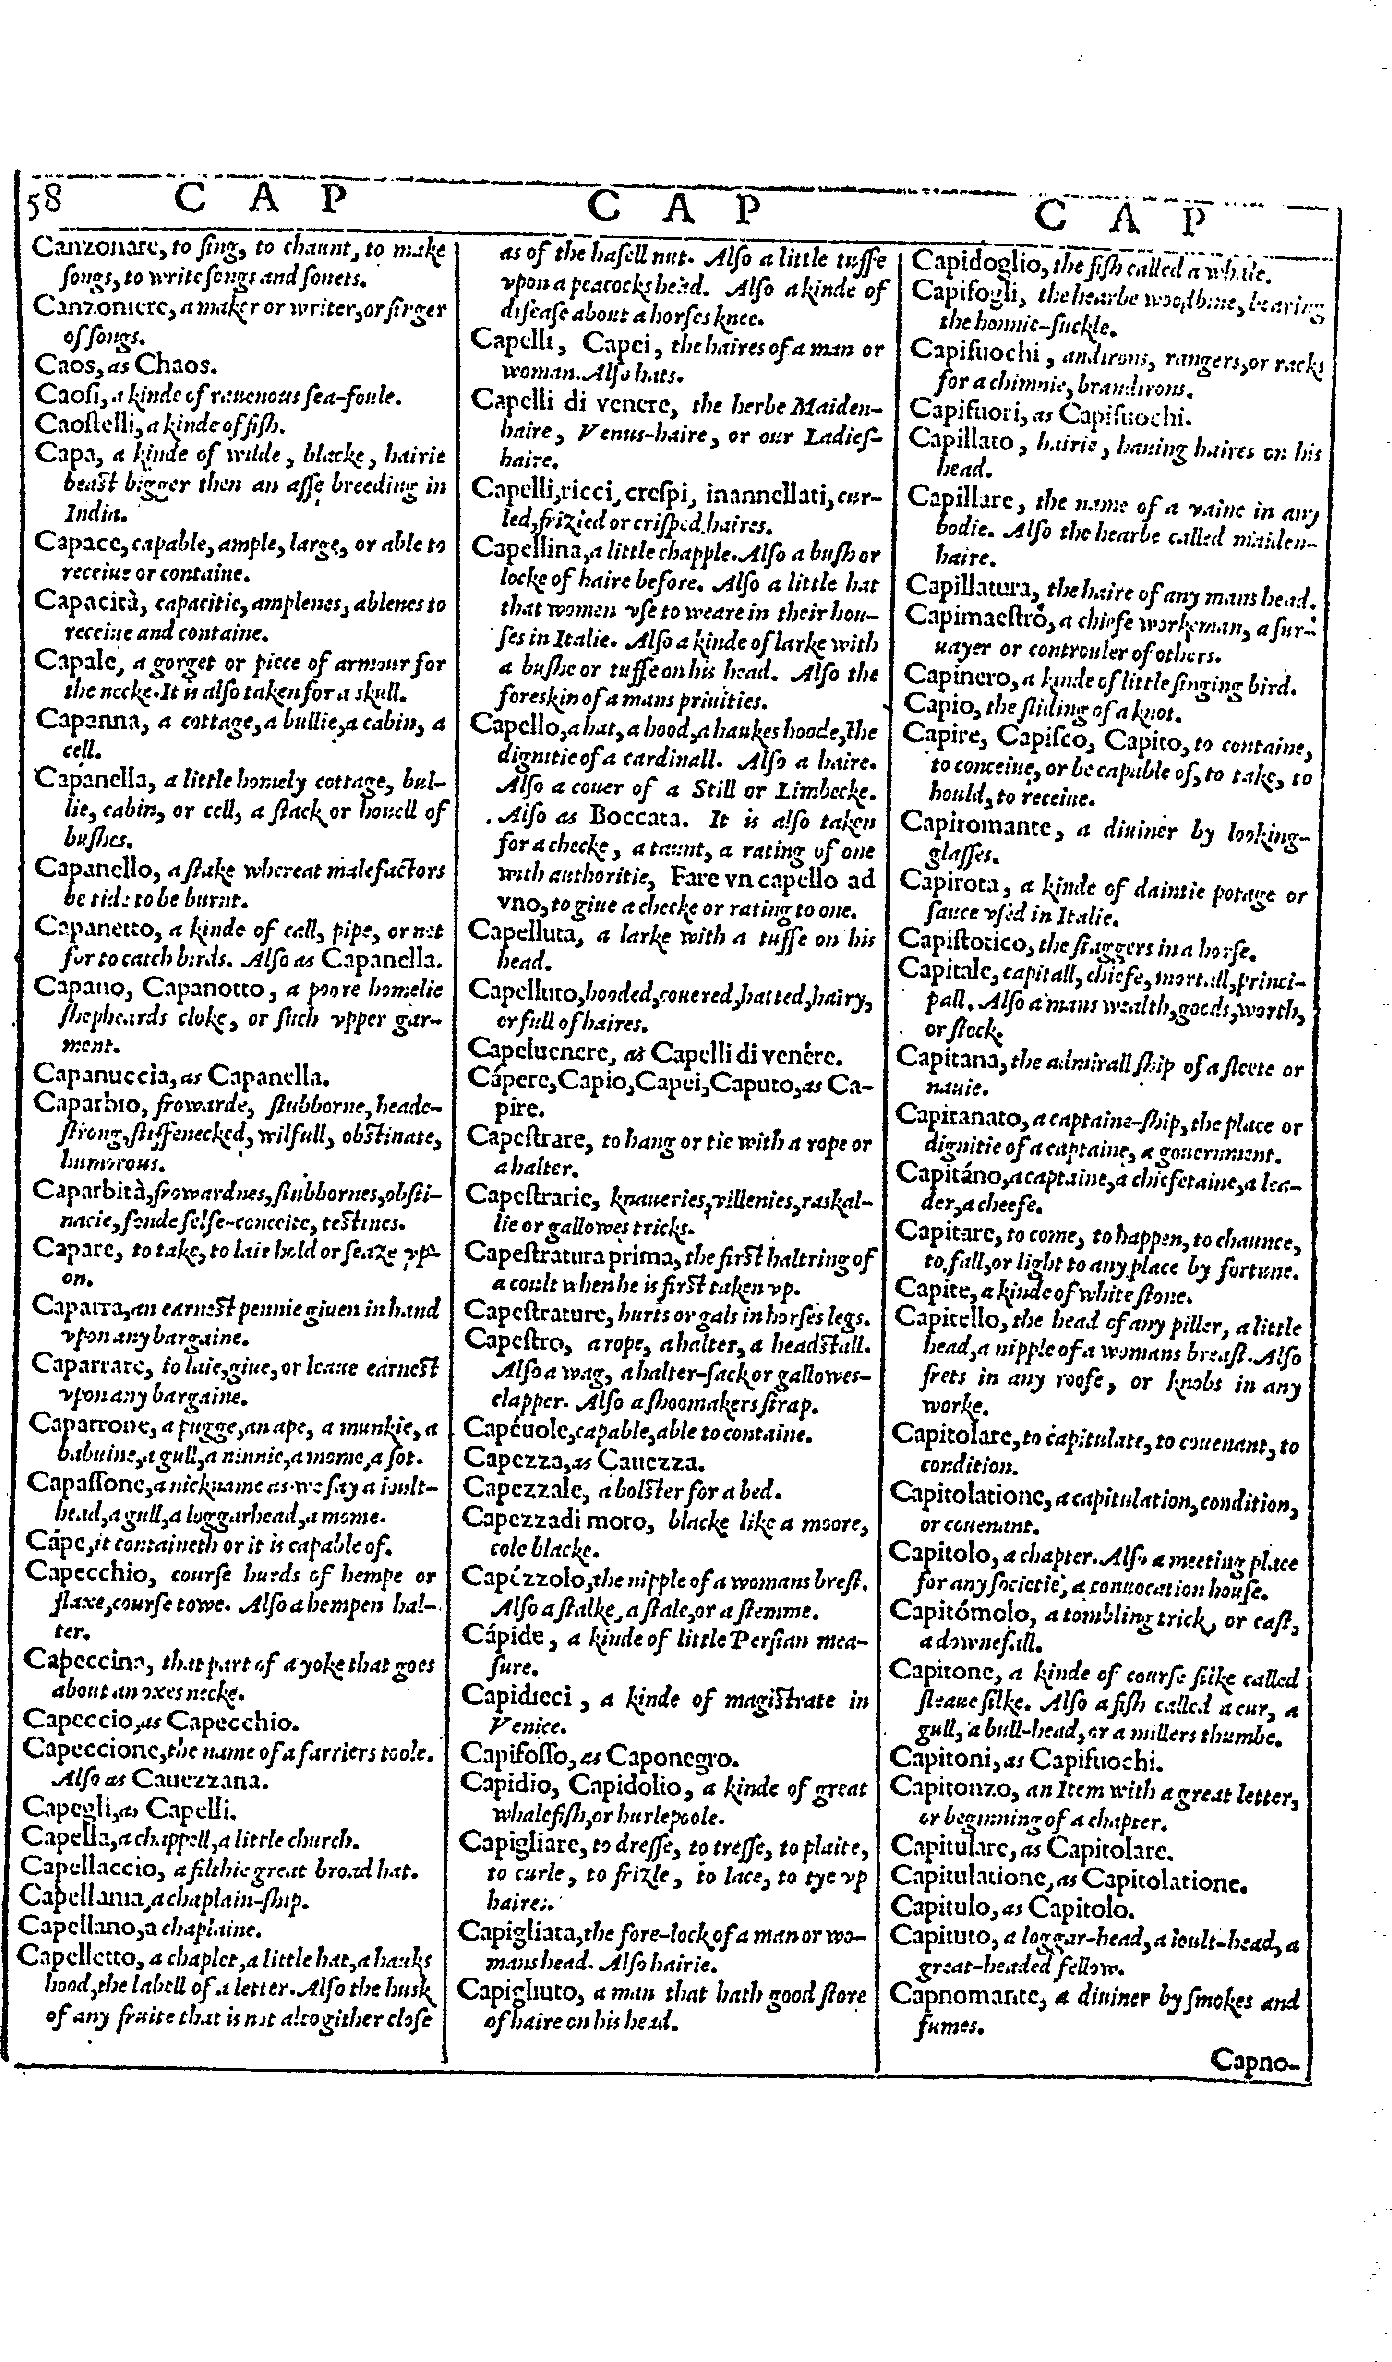 58 C A P C A P C A P
Canzonare, to ſing, to chaunt, to make
ſongs, to write ſongs and ſonets.
Canzoniere, a maker or writer, or ſinger
of ſongs.
Caos, as Chaos.
Caoſi, a kinde of rauenous ſea-foule.
Caoſtelli, a kinde of fiſh.
Capa, a kinde of wilde, blacke, hairie
beaſt bigger then an aſſe breeding in
India.
Capace, capable, ample, large, or able to
receiue or containe.
Capacità, capacitie, amplenes, ablenes to
receiue and containe.
Capale, a gorget or piece of armour for
the necke. It is alſo taken for a skull.
Capanna, a cottage, a bullie, a cabin, a
cell.
Capanella, a little homely cottage, bul-
lie, cabin, or cell, a ſtack or houell of
buſhes.
Capanello, a ſtake whereat malefactors
be tide to be burnt.
Capanetto, a kinde of call, pipe, or net
for to catch birds. Alſo as Capanella.
Capano, Capanotto, a poore homelie
ſhepheards cloke, or ſuch vpper gar-
ment.
Capanuccia, as Capanella.
Caparbio, frowarde, ſtubborne, heade-
ſtrong, ſtiffenecked, wilfull, obſtinate,
humorous.
Caparbità, frowardnes, ſtubbornes, obſti-
nacie, fonde ſelfe-conceite, teſtines.
Capare, to take, to laie hold or ſeaze vp-
on.
Caparra, an earneſt pennie giuen in hand
vpon any bargaine.
Caparrare, to laie, giue, or leaue earneſt
vpon any bargaine.
Caparrone, a pugge, an ape, a munkie, a
babuine, a gull, a ninnie, a mome, a ſot.
Capaſſone, a nickname as we ſay a ioult-
head, a gull, a loggarhead, a mome.
Cápe, it containeth or it is capable of.
Capecchio, courſe hurds of hempe or
flaxe, courſe towe. Alſo a hempen hal-
ter.
Capeccina, that part of a yoke that goes
about an oxes necke.
Capeccio, as Capecchio.
Capeccione, the name of a farriers toole.
Alſo as Cauezzana.
Capegli, as Capelli.
Capella, a chappell, a little church.
Capellaccio, a filthie great broad hat.
Capellania, a chaplain-ſhip.
Capellano, a chaplaine.
Capelletto, a chaplet, a little hat, a hauks
hood, the labell of a letter. Alſo the husk
of any fruite that is not altogither cloſe
as of the haſell nut. Alſo a little tuffe
vpon a peacocks head. Alſo a kinde of
diſeaſe about a horſes knee.
Capelli, Capei, the haires of a man or
woman. Alſo hats.
Capelli di venere, the herbe Maiden-
haire, Venus-haire, or our Ladieſ-
haire.
Capelli, ricci, creſpi, inannellati, cur-
led, frizied or criſped haires.
Capellina, a little chapple. Alſo a buſh or
locke of haire before. Alſo a little hat
that women vſe to weare in their hou-
ſes in Italie. Alſo a kinde of larke with
a buſhe or tuffe on his head. Alſo the
foreskin of a mans priuities.
Capello, a hat, a hood, a haukes hoode, the
dignitie of a cardinall. Alſo a haire.
Alſo a couer of a Still or Limbecke.
Alſo as Boccata. It is alſo taken
for a checke, a taunt, a rating of one
with authoritie, Fare vn capello ad
vno, to giue a checke or rating to one.
Capelluta, a larke with a tuffe on his
head.
Capelluto, hooded, couered, hatted, hairy,
or full of haires.
Capeluenere, as Capelli di venére.
Cápere, Capio, Capei, Caputo, as Ca-
pire.
Capeſtrare, to hang or tie with a rope or
a halter.
Capeſtrarie, knaueries, villenies, raskal-
lie or gallowes tricks.
Capeſtratura prima, the firſt haltring of
a coult when he is firſt taken vp.
Capeſtrature, hurts or gals in horſes legs.
Capeſtro, a rope, a halter, a headſtall.
Alſo a wag, a halter-ſack or gallowes-
clapper. Alſo a ſhoomakers ſtrap.
Capéuole, capable, able to containe.
Capezza, as Cauezza.
Capezzale, a bolſter for a bed.
Capezzadi moro, blacke like a moore,
cole blacke.
Capézzolo, the nipple of a womans breſt.
Alſo a ſtalke, a ſtale, or a ſtemme.
Cápide, a kinde of little Perſian mea-
ſure.
Capidieci, a kinde of magiſtrate in
Venice.
Capifoſſo, as Caponegro.
Capidio, Capidolio, a kinde of great
whalefiſh, or hurlepoole.
Capigliare, to dreſſe, to treſſe, to plaite,
to curle, to frizle, to lace, to tye vp
haires.
Capigliata, the fore-lock of a man or wo-
mans head. Alſo hairie.
Capigliuto, a man that hath good ſtore
of haire on his head.
Capidoglio, the fiſh called a whale.
Capifogli, the hearbe woodbine, bearing
the honnie-ſuckle.
Capifuochi, andirons, rangers, or racks
for a chimnie, brandirons.
Capifuori, as Capifuochi.
Capillato, hairie, hauing haires on his
head.
Capillare, the name of a vaine in any
bodie. Alſo the hearbe called maiden-
haire.
Capillatura, the haire of any mans head.
Capimaeſtro, a chiefe workeman, a ſur-
uayer or controuler of others.
Capinero, a kinde of little ſinging bird.
Capio, the ſliding of a knot.
Capire, Capiſco, Capito, to containe,
to conceiue, or be capable of, to take, to
hould, to receiue.
Capiromante, a diuiner by looking-
glaſſes.
Capirota, a kinde of daintie potage or
ſauce vſed in Italie.
Capiſtotico, the ſtaggers in a horſe.
Capitale, capitall, chiefe, mortall, princi-
pall. Alſo a mans wealth, goods, worth,
or ſtock.
Capitana, the admirall ſhip of a fleete or
nauie.
Capitanato, a captaine-ſhip, the place or
dignitie of a captaine, a gouernment.
Capitáno, a captaine, a chiefetaine, a lea-
der, a cheefe.
Capitare, to come, to happen, to chaunce,
to fall, or light to any place by fortune.
Capite, a kinde of white ſtone.
Capitello, the head of any piller, a little
head, a nipple of a womans breaſt. Alſo
frets in any roofe, or knobs in any
worke.
Capitolare, to capitulate, to couenant, to
condition.
Capitolatione, a capitulation, condition,
or couenant.
Capitolo, a chapter. Alſo a meeting place
for any ſocietie, a conuocation houſe.
Capitómolo, a tombling trick, or caſt,
a downefall.
Capitone, a kinde of courſe ſilke called
ſleaue ſilke. Alſo a fiſh called a cur, a
gull, a bull-head, or a millers thumbe.
Capitoni, as Capifuochi.
Capitonzo, an Item with a great letter,
or beginning of a chapter.
Capitulare, as Capitolare.
Capitulatione, as Capitolatione.
Capitulo, as Capitolo.
Capituto, a loggar-head, a ioult-head, a
great-headed fellow.
Capnomante, a diuiner by ſmokes and
fumes.
Capno-